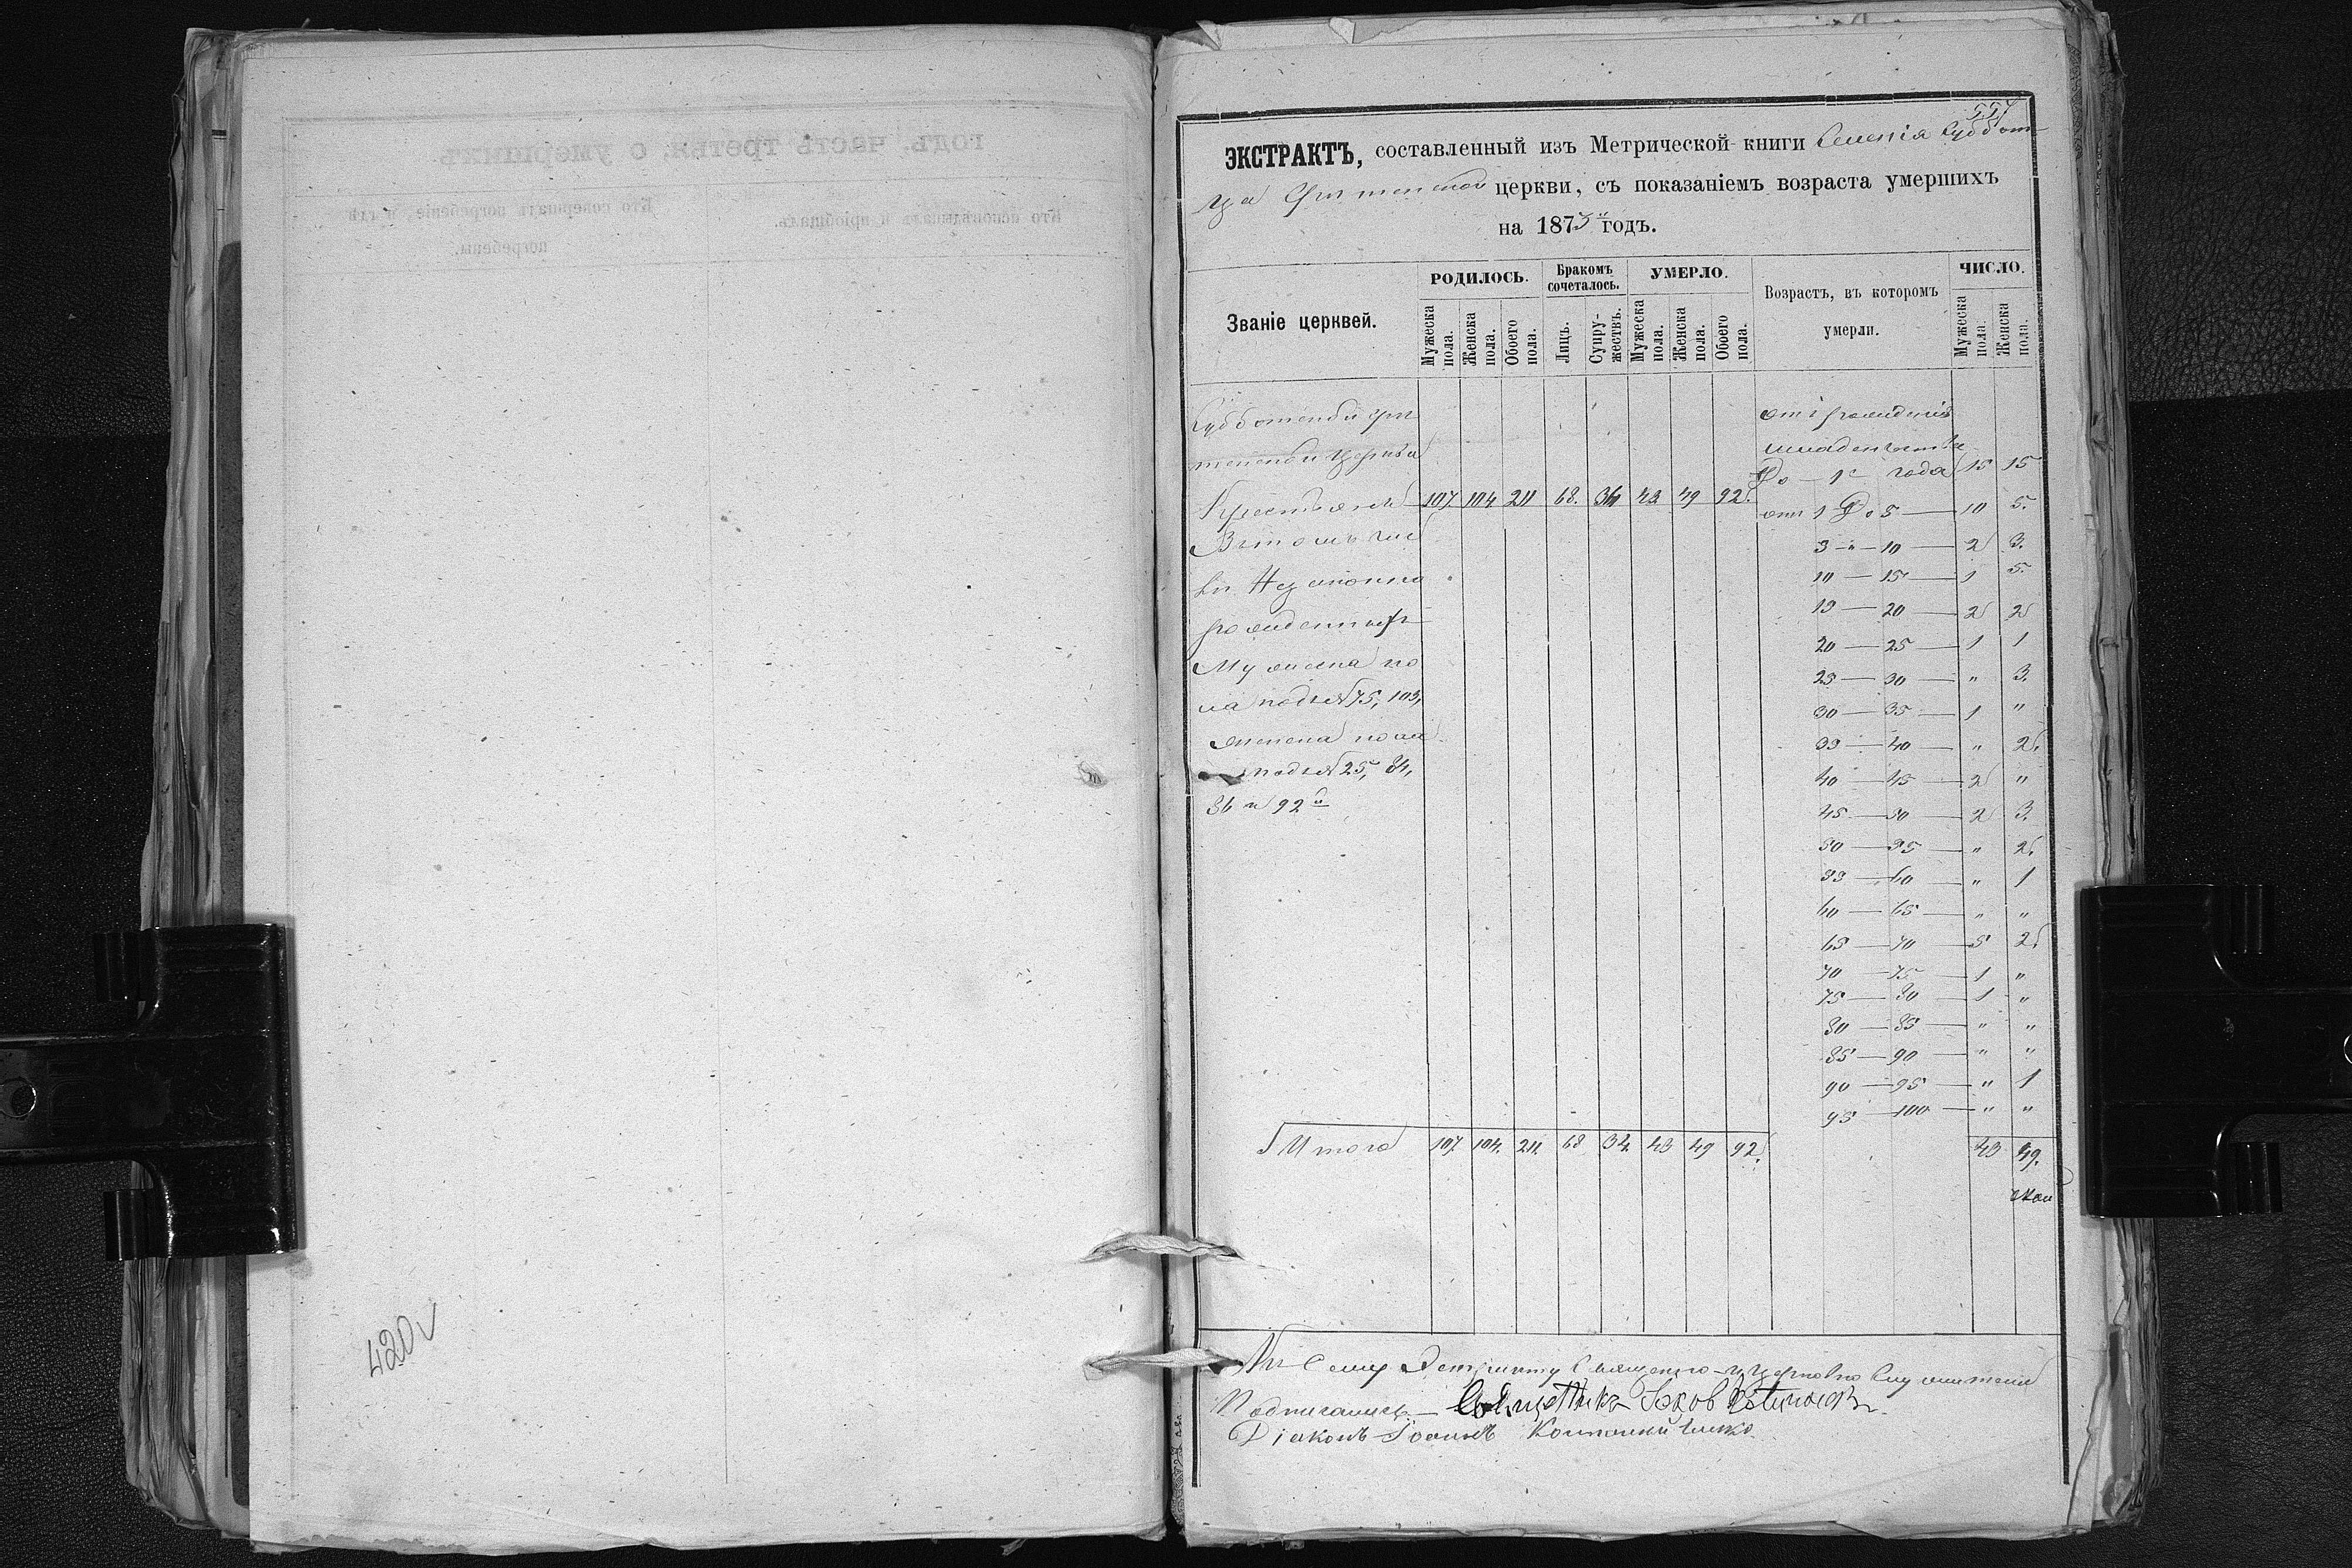 420 v
557
ЭКСТРАКТЪ, составленный изъ Метрической книги Селенія Суббот-
ца Срѣтенской церкви, съ показаніемъ возраста умершихъ
на 1873й годъ.
Званіе церквей.
РОДИЛОСЬ.
Мужеска пола.
Женска пола.
Обоего пола.
Бракомъ сочеталось.
Лицъ.
Супружествъ.
УМЕРЛО.
Мужеска пола.
Женска пола.
Обоего пола.
Возрастъ, въ которомъ
умерли.
ЧИСЛО.
Мужеска пола.
Женска пола.
Субботской Срѣ
тенской Церкви
Крестьянъ 107. 104 211 68. 34 43 49 92.
Въ томъ чис
лѣ Незаконно
рожденныхъ
Мужеска по
ла подъ № 75, 103,
женска пола
подъ № 25, 34,
36 и 92й
отъ рожденія
младенчества
До — 1г года 15 15
отъ 1 До 5 — 10 5.
5 — " — 10 — 2 3.
10 — 15 — 1 5.
15 — 20 — 2 2
20 — 25 — 1 1
25 — 30 — " 3.
30 — 35 — 1 "
35 — 40 — " 2.
40 — 45 — 2 "
45 — 50 — 2 3.
50 — 55 — " 2.
55 — 60 — " 1
60 — 65 — " "
65 — 70 — 5 2.
70 — 75 — 1 "
75 — 80 — 1 "
80 — 85 — " "
85 — 90 — " "
90 — 95 — " 1
95 — 100 — " "
Итого 107. 104. 211. 68 34. 43 49 92. 43 49.
Къ Сему Экстракту Священно-и Церковно Служители
Подписались: — Священникъ Іяков
Діаконъ Іоаннъ